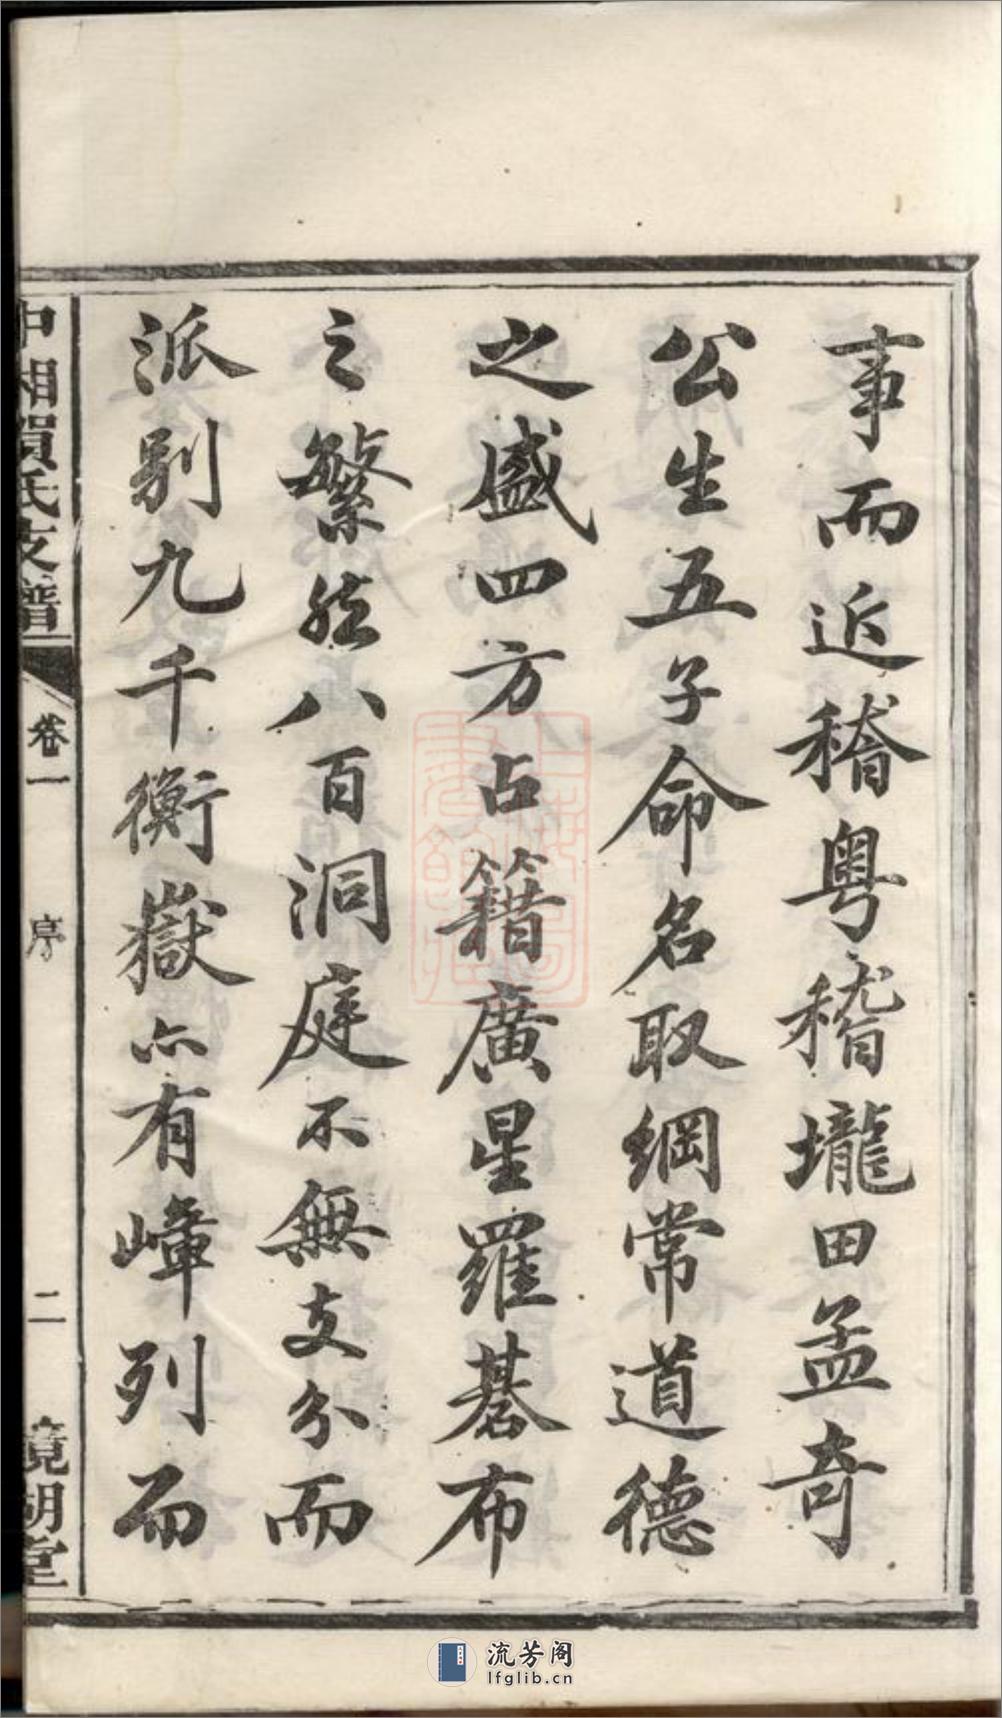 事而近稽粵稽壠田孟奇
公生五子命名取綱常道德
之盛四方占籍廣星羅棊布
之繁然八百洞庭不無支分而
派别九千衡嶽亦有嶂列而
中湘賀氏支譜
卷一
序
二
鏡湖堂
上海圖書館藏
流芳阁
lfglib.cn